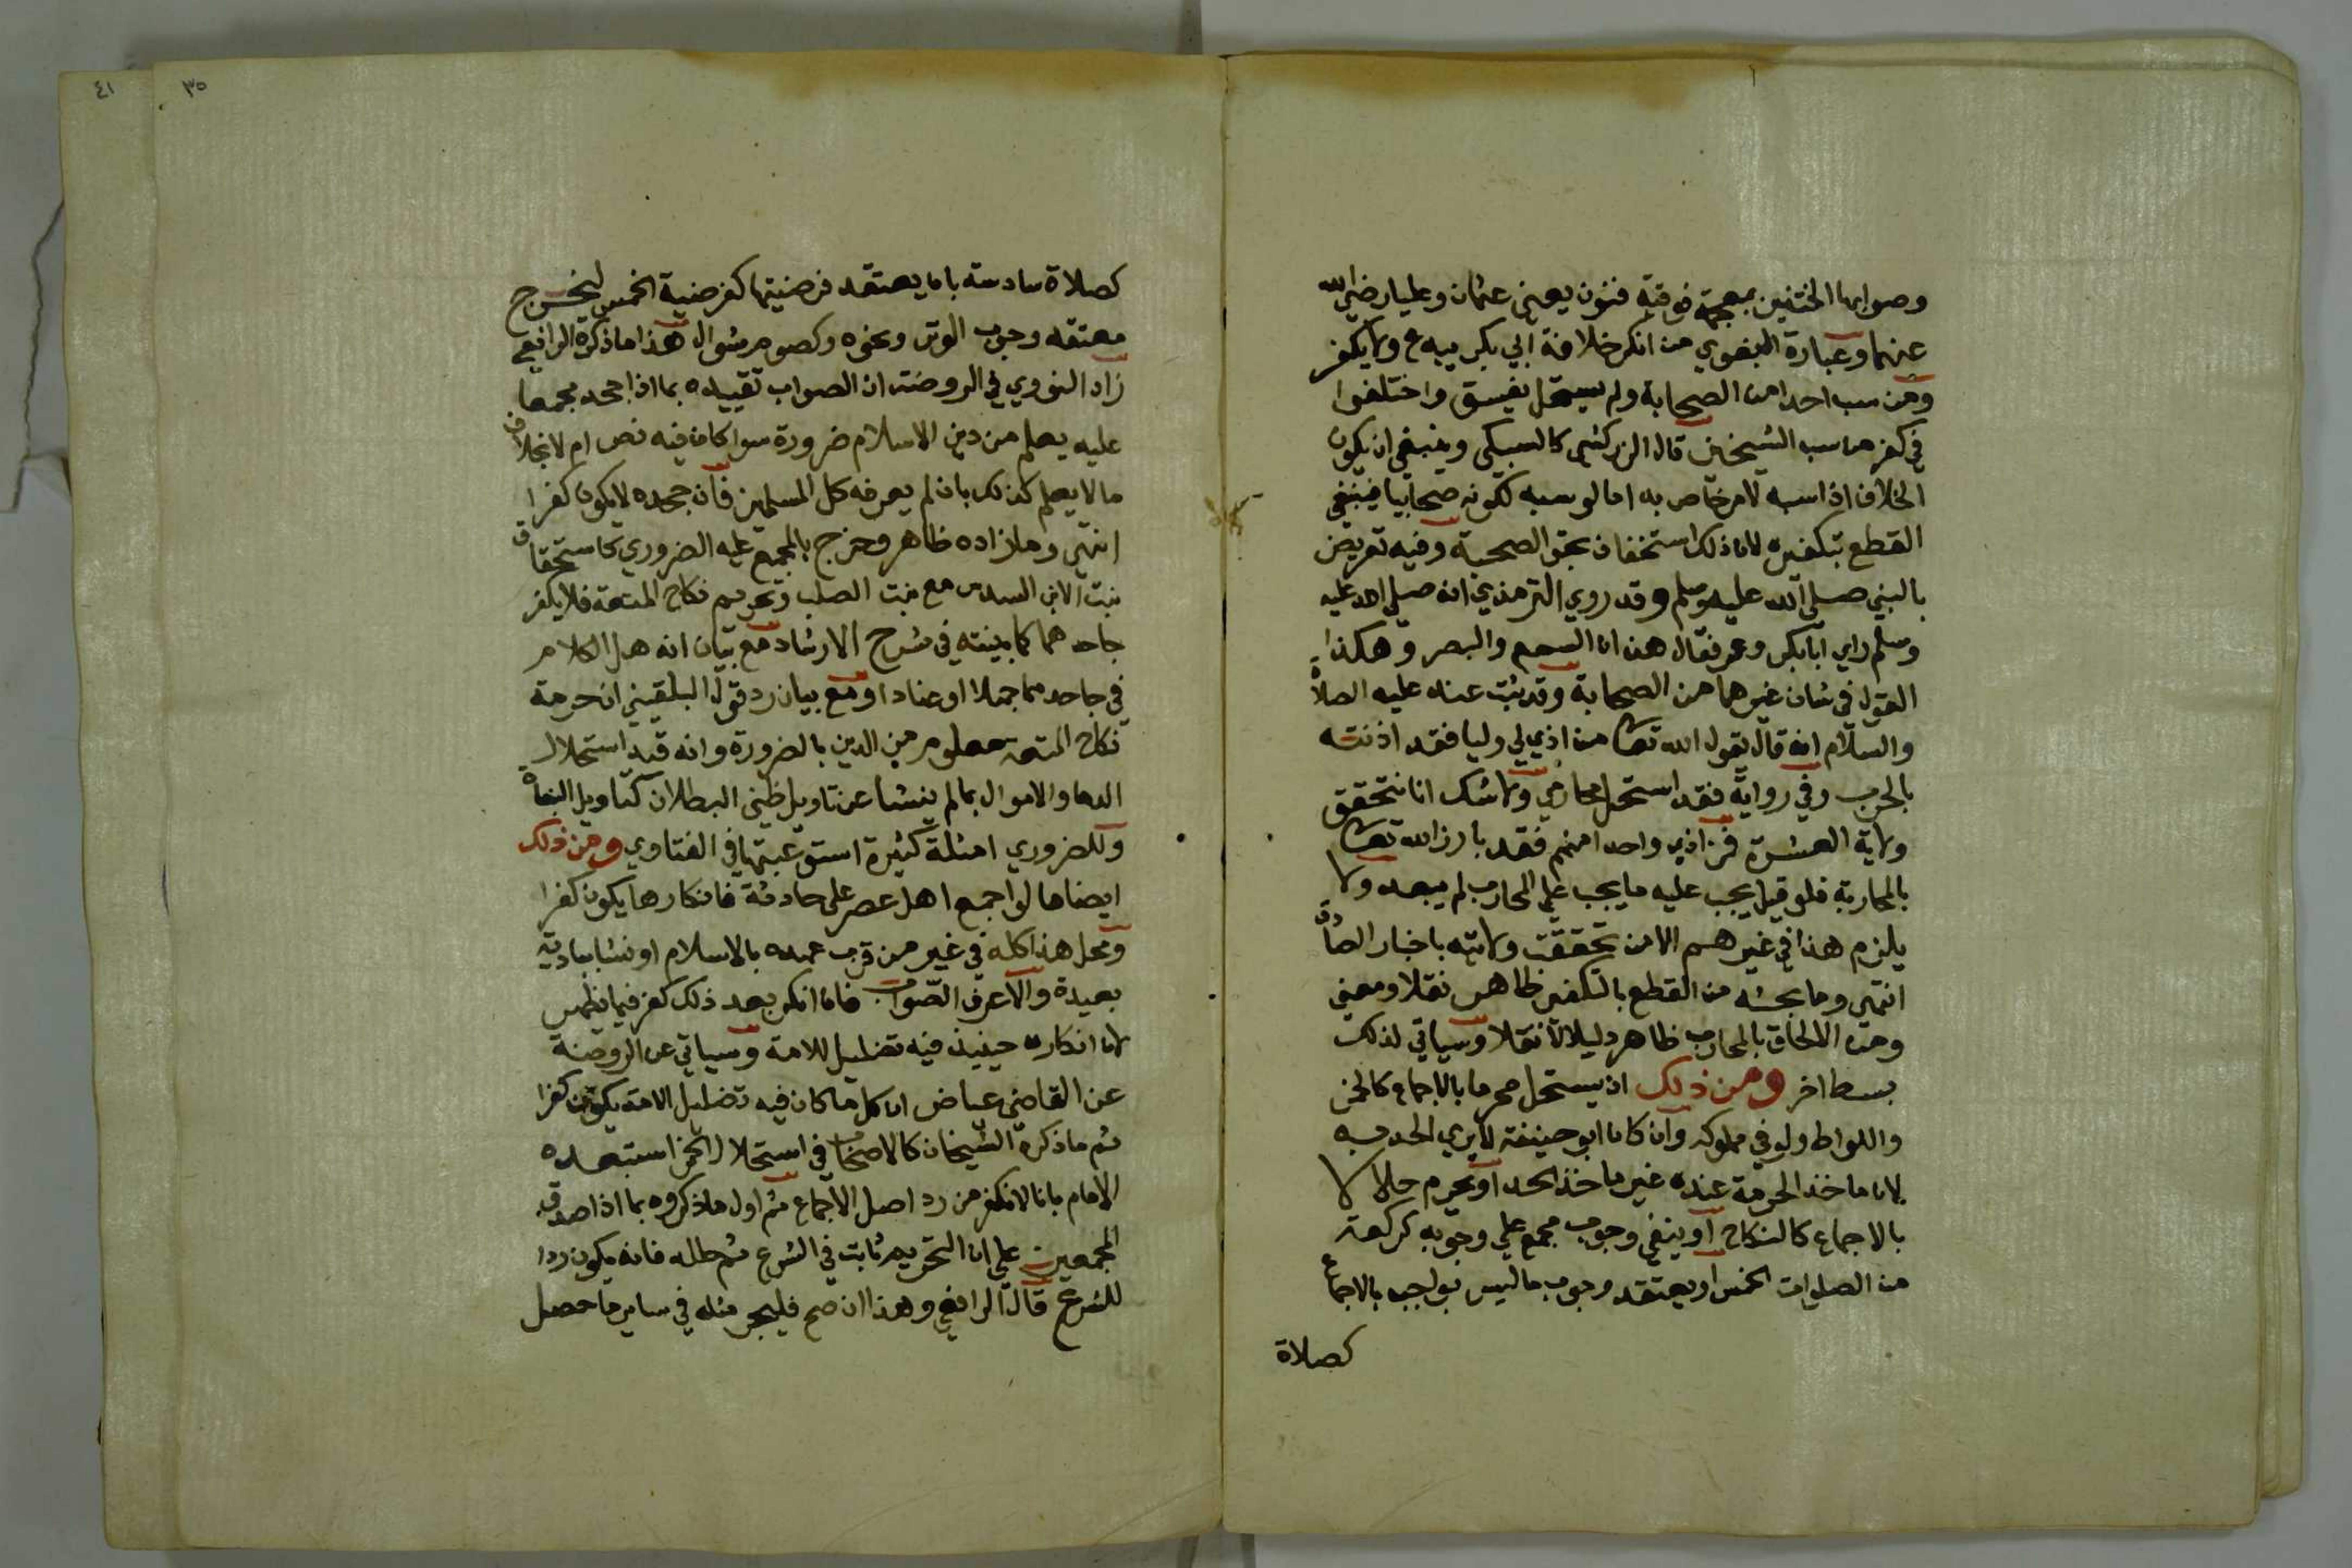 وصوابها الختنين بمعجمة فوقية فنون يعني عثمان وعليا رضي الله
عنهما وعبارة البغوي من انكر خلافة ابي بكر يبدع ولا يكفر
ومن سب احدا من الصحابة ولم يستحل يفسق واختلفوا
في كفر من سب الشيخين قال الزركشي كالسبكي وينبغي ان يكون
الخلاف اذا سبه لامر خاص به اما لو سبه لكونه صحابيا فينبغي
القطع بتكفيره لان ذلك استخفاف بحق الصحبة وفيه تعريض
بالنبي صلي الله عليه وسلم وقد روي الترمذي انه صلي الله عليه
وسلم راي ابا بكر وعمر فقال هذان السمع والبصر وهكذا
القول في شان غيرهما من الصحابة وقد ثبت عنه عليه الصلاة
والسلام انه قال يقول الله تعالى من اذي لي وليا فقد اذنته
بالحرب وفي رواية فقد استحل محارمي ولا شك انا نتحقق
ولاية العشرة فمن اذي واحدا منهم فقد بارز الله تعالى
بالمحاربة فلو قيل يجب عليه ما يجب علي المحارب لم يبعد ولا
يلزم هذا في غيرهم الا من تحققت ولايته باخبار الصادق
انتهى وما بحثه من القطع بالتكفير ظاهر نقلا ومعنى
ومن الالحاق بالمحارب ظاهر دليلا لا نقلا وسياتي لذلك
بسط اخر ومن ذلك ان يستحل محرما بالاجماع كالخمر
واللواط ولو في مملوكه وان كان ابو حنيفة لا يري الحد به
لان ماخذ الحرمة عنده غير ماخذ الحد او يحرم حلالا
بالاجماع كالنكاح او ينفي وجوب مجمع علي وجوبه كركعة
من الصلوات الخمس او يعتقد وجوب ما ليس بواجب بالاجماع
كصلاة
٤١
٣٥
كصلاة سادسة بان يعتقد فرضيتها كفرضية الخمس ليخرج
معتقد وجوب الوتر ونحوه وكصوم شوال هذا ما ذكره الرافعي
زاد النووي في الروضة ان الصواب تقييده بما اذا جحد مجمعا
عليه يعلم من دين الاسلام ضرورة سوا كان فيه نص ام لا بخلاف
ما لا يعلم كذلك بان لم يعرفه كل المسلمين فان جحده لا يكون كفرا
انتهى وما زاده ظاهر وخرج بالمجمع عليه الضروري كاستحقاق
بنت الابن السدس مع بنت الصلب وتحريم نكاح المتعة فلا يكفر
جاحدهما كما بينته في شرح الارشاد مع بيان انه هل الكلام
في جاحدهما جهلا او عنادا ومع بيان رد قول البلقيني ان حرمة
نكاح المتعة معلوم من الدين بالضرورة وانه قيد استحلال
الدما والاموال بما لم ينشا عن تاويل ظني البطلان كتاويل البغاة
وللضروري امثلة كثيرة استوعبتها في الفتاوي ومن ذلك
ايضا ما لو اجمع اهل عصر على حادثة فانكارها يكون كفرا
ومحل هذا كله في غير من قرب عهده بالاسلام او نشا ببادية
بعيدة والا عرف الصواب فان انكر بعد ذلك كفر فيما يظهر
لان انكاره حينيذ فيه تضليل للامة وسياتي عن الروضة
عن القاضي عياض ان كل ما كان فيه تضليل الامة يكون كفرا
ثم ما ذكره الشيخان كالاصحاب في استحلال الخمر استبعده
الامام بانا لا نكفر من رد اصل الاجماع ثم اول ما ذكروه بما اذا صدق
المجمعين علي ان التحريم ثابت في الشرع ثم حلله فانه يكون ردا
للشرع قال الرافعي وهذا ان صح فليجر مثله في ساير ما حصل